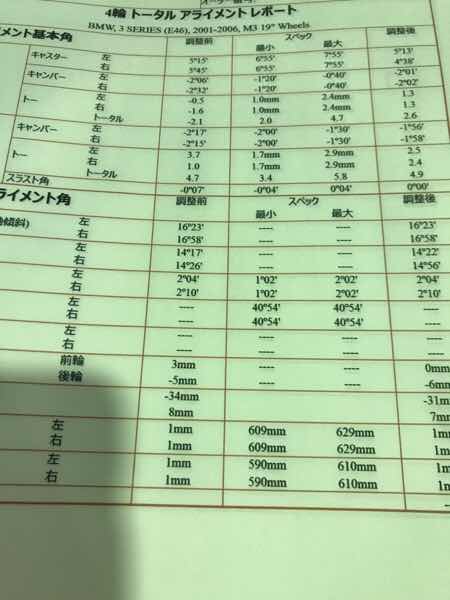 4輪 トータル アライメント レポート
BMW, 3 SERIES (E46), 2001-2006, M3 19" Wheels
メント基本角 調整前 スペック 調整後
最小 最大
キャスター 左 5°15' 6°55' 7°55' 5°13'
右 5°45' 6°55' 7°55' 4°38'
キャンバー 左 -2°06' -1°20' -0°40' -2°01'
右 -2°32' -1°20' -0°40' -2°02'
トー 左 -0.5 1.0mm 2.4mm 1.3
右 -1.6 1.0mm 2.4mm 1.3
トータル -2.1 2.0 4.7 2.6
キャンバー 左 -2°17' -2°00' -1°30' -1°56'
右 -2°15' -2°00' -1°30' -1°58'
トー 左 3.7 1.7mm 2.9mm 2.5
右 1.0 1.7mm 2.9mm 2.4
トータル 4.7 3.4 5.8 4.9
スラスト角 -0°07' -0°04' 0°04' 0°00'
ライメント角 調整前 スペック 調整後
最小 最大
傾斜) 左 16°23' ---- ---- 16°23'
右 16°58' ---- ---- 16°58'
左 14°17' ---- ---- 14°22'
右 14°26' ---- ---- 14°56'
左 2°04' 1°02' 2°02' 2°04'
右 2°10' 1°02' 2°02' 2°10'
左 ---- 40°54' 40°54' ----
右 ---- 40°54' 40°54' ----
左 ---- ---- ---- ----
右 ---- ---- ---- ----
前輪 3mm ---- ---- 0mm
後輪 -5mm ---- ---- -6m
-34mm -31m
8mm 7m
左 1mm 609mm 629mm 1m
右 1mm 609mm 629mm 1m
左 1mm 590mm 610mm 1m
右 1mm 590mm 610mm 1m